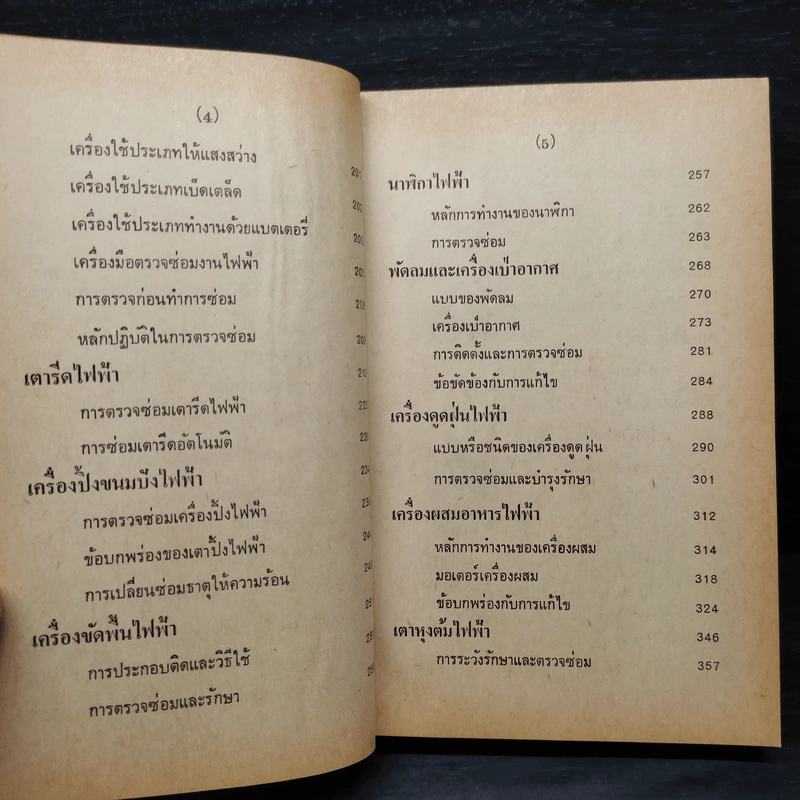 (4)
เครื่องใช้ประเภทให้แสงสว่าง
เครื่องใช้ประเภทเบ็ดเตล็ด
เครื่องใช้ประเภททำงานด้วยแบตเตอรี่
เครื่องมือตรวจซ่อมงานไฟฟ้า
การตรวจก่อนทำการซ่อม
หลักปฏิบัติในการตรวจซ่อม
เตารีดไฟฟ้า
การตรวจซ่อมเตารีดไฟฟ้า
การซ่อมเตารีดอัตโนมัติ
เครื่องปิ้งขนมปังไฟฟ้า
การตรวจซ่อมเครื่องปิ้งไฟฟ้า
ข้อบกพร่องของเตาปิ้งไฟฟ้า
การเปลี่ยนซ่อมธาตุให้ความร้อน
เครื่องขัดพื้นไฟฟ้า
การประกอบติดและวิธีใช้
การตรวจซ่อมและรักษา
(5)
นาฬิกาไฟฟ้า 257
หลักการทำงานของนาฬิกา 262
การตรวจซ่อม 263
พัดลมและเครื่องเป่าอากาศ 268
แบบของพัดลม 270
เครื่องเป่าอากาศ 273
การติดตั้งและการตรวจซ่อม 281
ข้อขัดข้องกับการแก้ไข 284
เครื่องดูดฝุ่นไฟฟ้า 288
แบบหรือชนิดของเครื่องดูดฝุ่น 290
การตรวจซ่อมและบำรุงรักษา 301
เครื่องผสมอาหารไฟฟ้า 312
หลักการทำงานของเครื่องผสม 314
มอเตอร์เครื่องผสม 318
ข้อบกพร่องกับการแก้ไข 324
เตาหุงต้มไฟฟ้า 346
การระวังรักษาและตรวจซ่อม 357